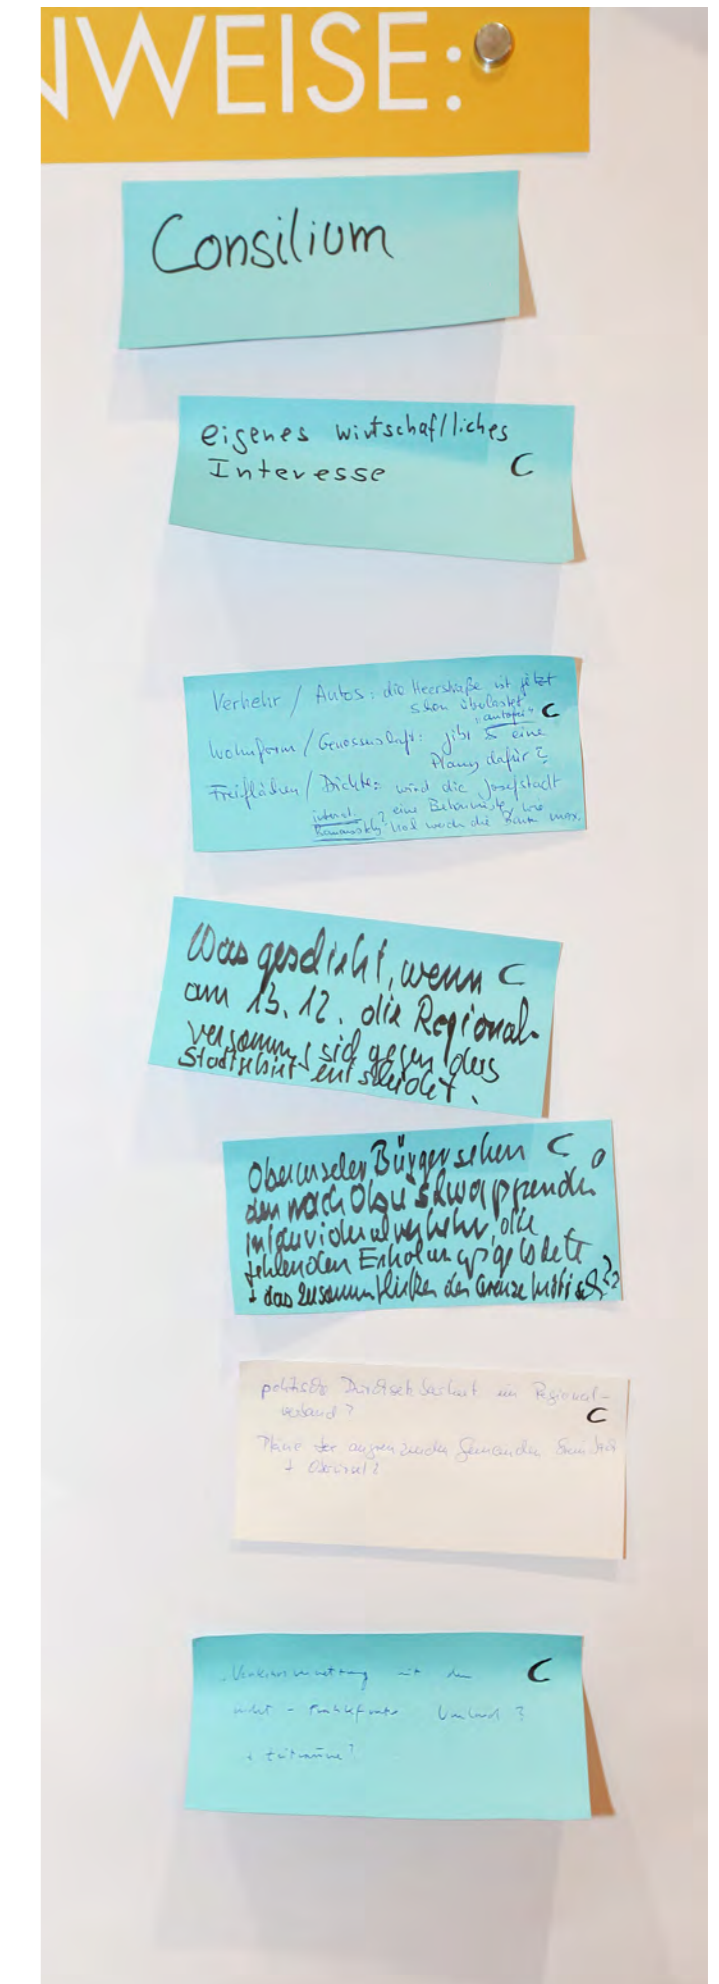 NWEISE:
Consilium
eigenes wirtschaftliches
Interesse C
Verkehr / Autos: die Heerstraße ist jetzt
schon überlastet C
"autofrei"
Wohnform / Genossenschaft: gibt es eine
Planung dafür?
Freiflächen / Dichte: wird die Josefstadt
eine Betonwüste, wie
hat noch die
Was geschieht, wenn C
am 13.12. die Regional-
versammlg sich gegen das
Stadtgebiet entscheidet.
Oberurseler Bürger sehen C
den nach Obu schwappenden
Individualverkehr, die
fehlenden Erholungsgebiete
+ das Zusammenfließen der Grenze kritisch??
politische Durchsetzbarkeit im Regional-
verband? C
Pläne der angrenzenden Gemeinden Steinbach
+ Oberursel?
mit dem C
nicht - Frankfurter Umland?
+ Zeiträume?